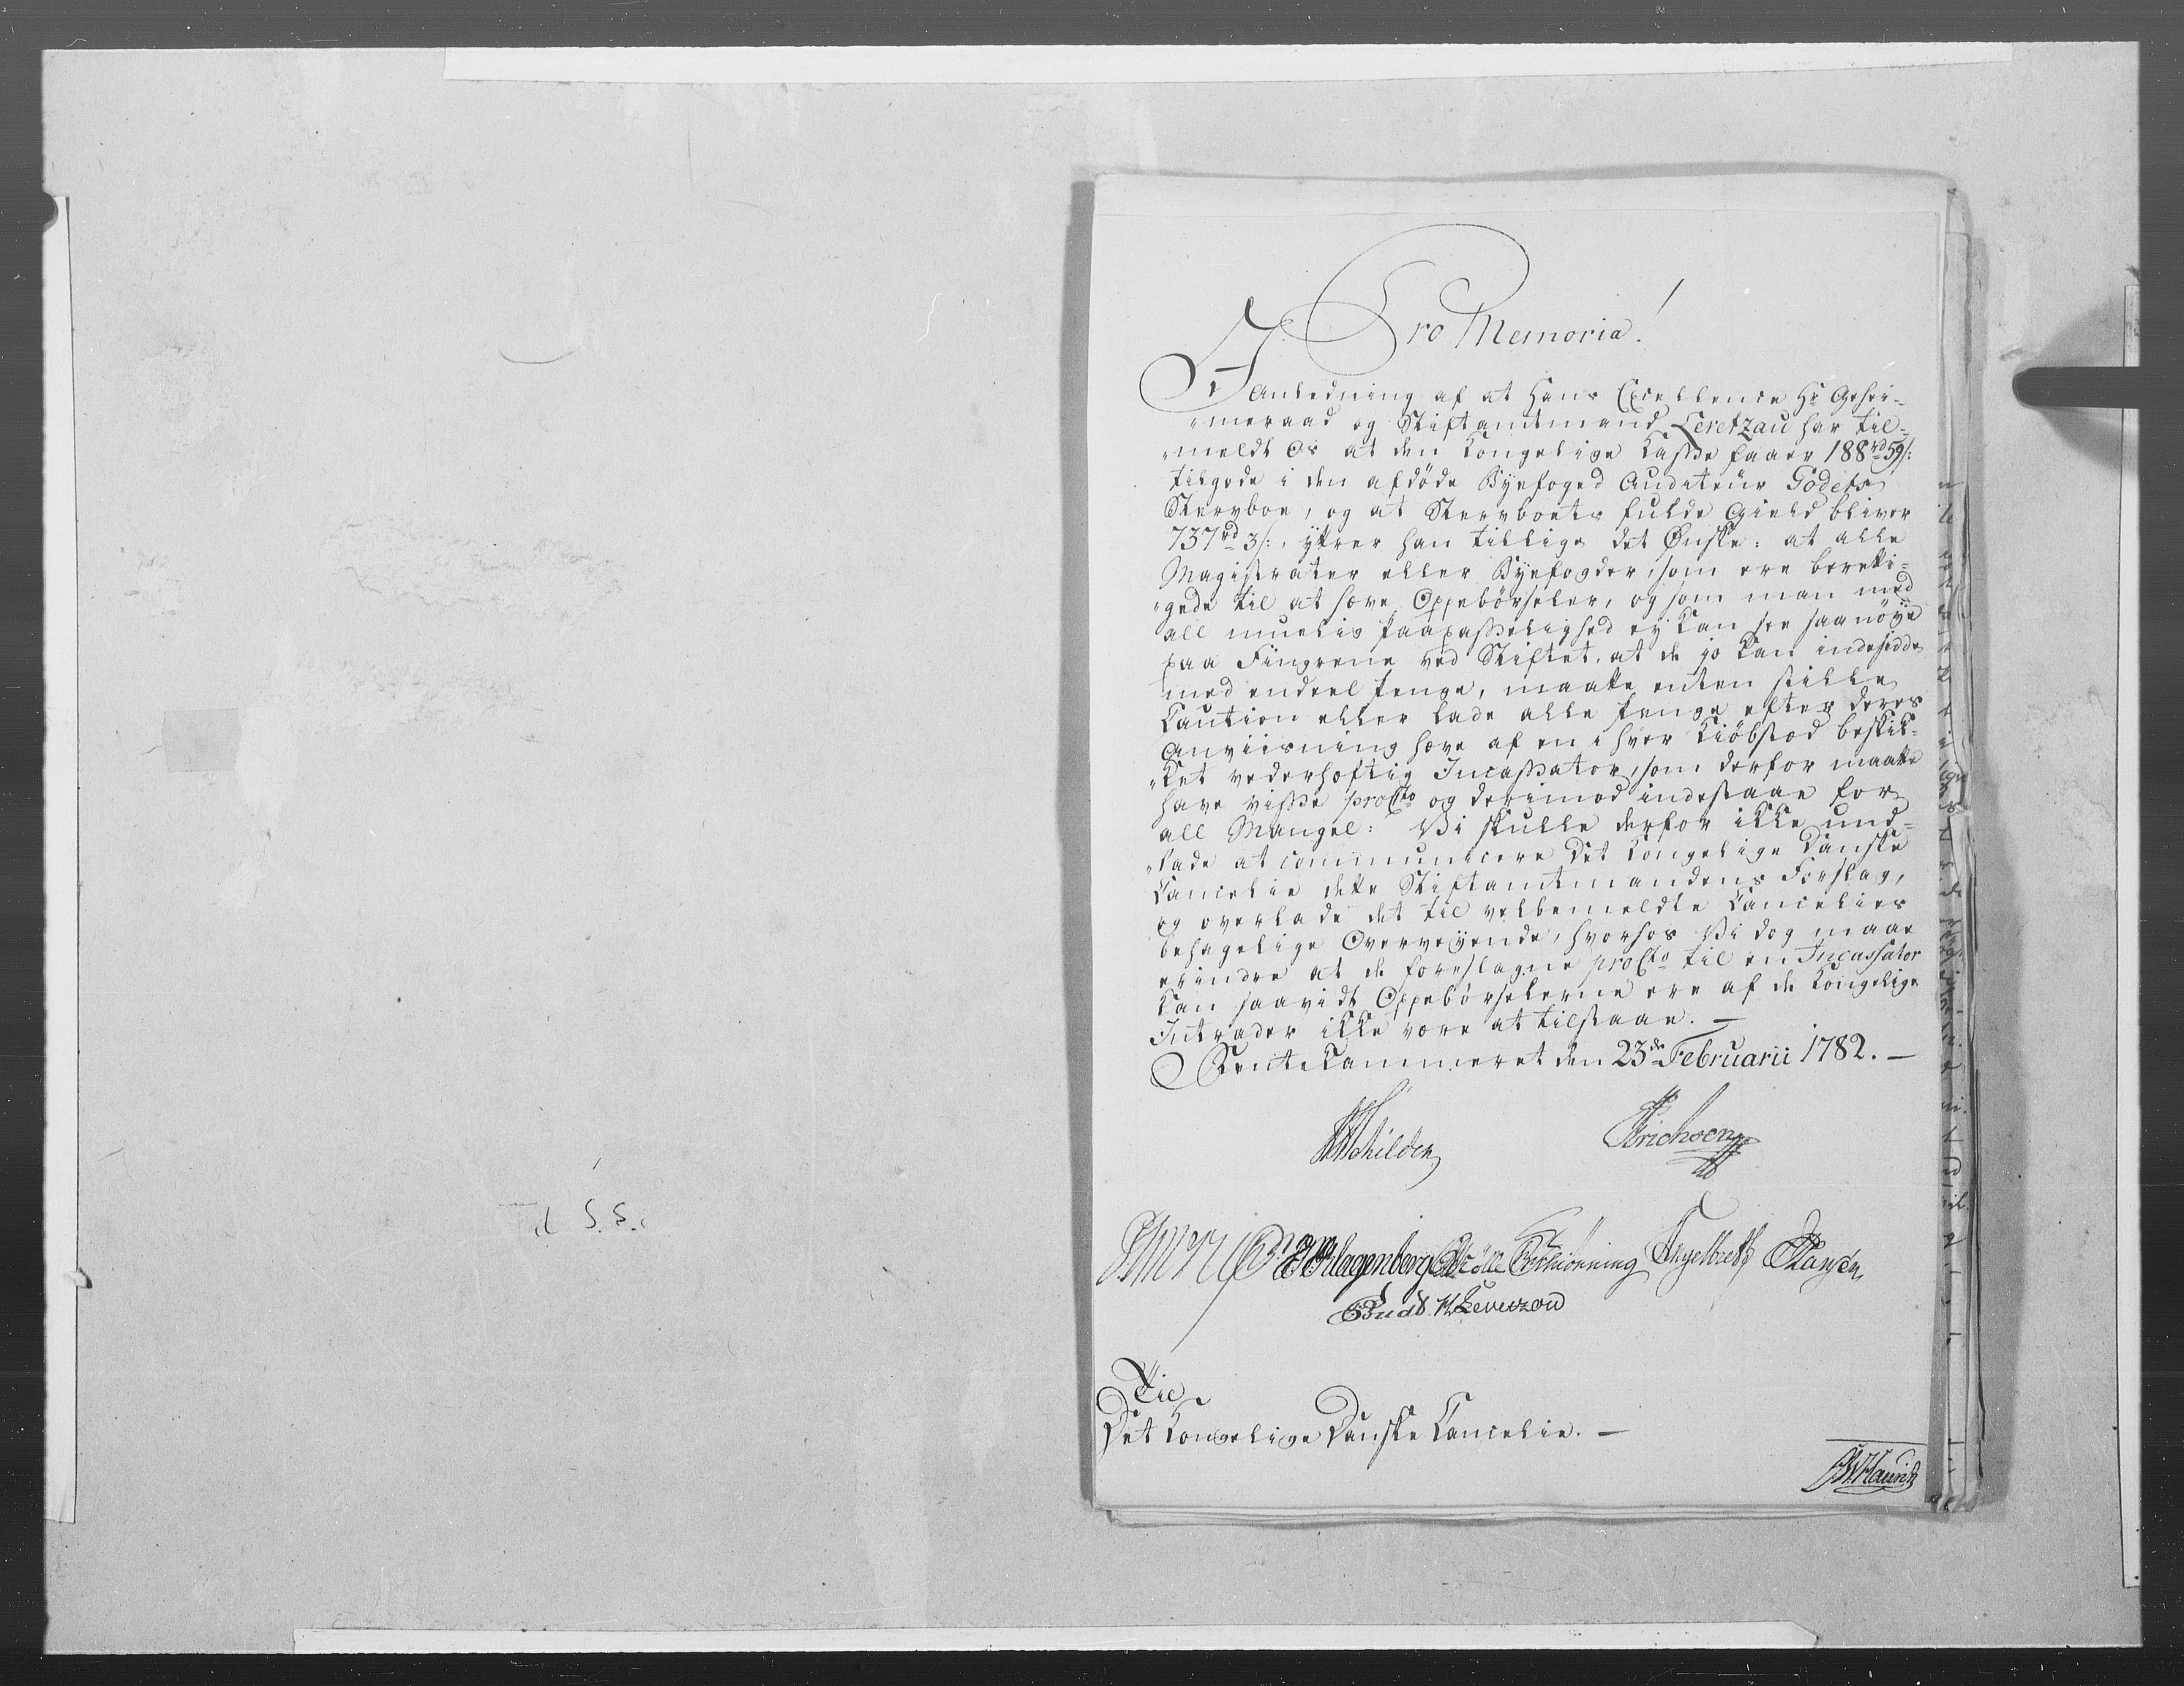 Pro Memoria!
I Anledning af at Hans Excellence Hr Gehei-
meraad og Stiftamtmand Levetzau har til-
meldt Os at den Kongelige Kasse faaer 188rd 59s:
tilgode i den afdöde Byefoged Auditeur Godets
Stervboe, og at Stervboets fulde Gield bliver
737rd 3s:, yttrer han tillige det Ønske: at alle
Magistrater eller Byefogder, som ere beretti-
gede til at hæve Oppebörseler, og som man med
all muelig Paapasselighed ey kan see saa nöye
paa Fingrene ved Stiftet, at de jo kan indesidde
med endeel Penge, maatte enten stille
Caution eller lade alle Penge efter deres
Anviisning hæve af en i hver Kiöbstæd beskik-
ket vederhæftig Incassator, som derfor maatte
have visse proCto og derimod indestaae for
all Mangel: Vi skulle derfor ikke und-
lade at communicere Det Kongelige Danske
Cancelie dette Stiftamtmandens Forslag,
og overlade det til velbemeldte Cancelies
behagelige Overveyende, hvorhos Vi dog maae
erindre at de foreslagne proCto til en Incassator
kan saavidt Oppebörselerne ere af de Kongelige
Intrader ikke være at tilstaae. —
RenteKammeret den 23de Februarii 1782. —
Schilden Erichsen
Klagenberg Schiönning Engelbreth Hansen
Budtz Levetzow
Til
Det Kongelige Danske Cancelie. —
Til S. S.